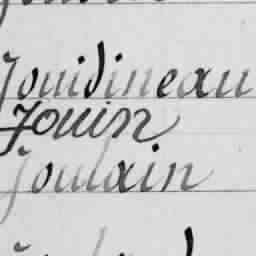 Jouidineau
Jouin
Joulain